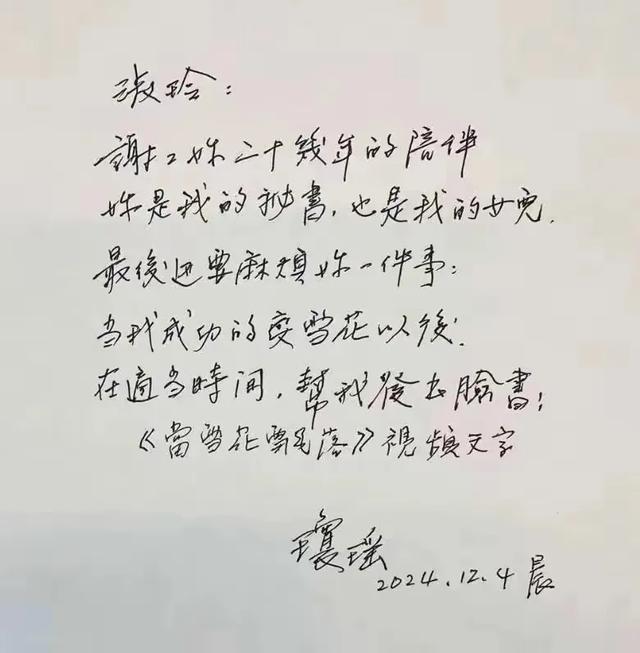 淑玲：
謝謝妳二十幾年的陪伴
妳是我的秘書，也是我的女兒。
最後还要麻煩妳一件事：
当我成功的变雪花以後。
在適当時间，幫我發出臉書：
《當雪花飄落》視頻文字
瓊瑤
2024.12.4晨